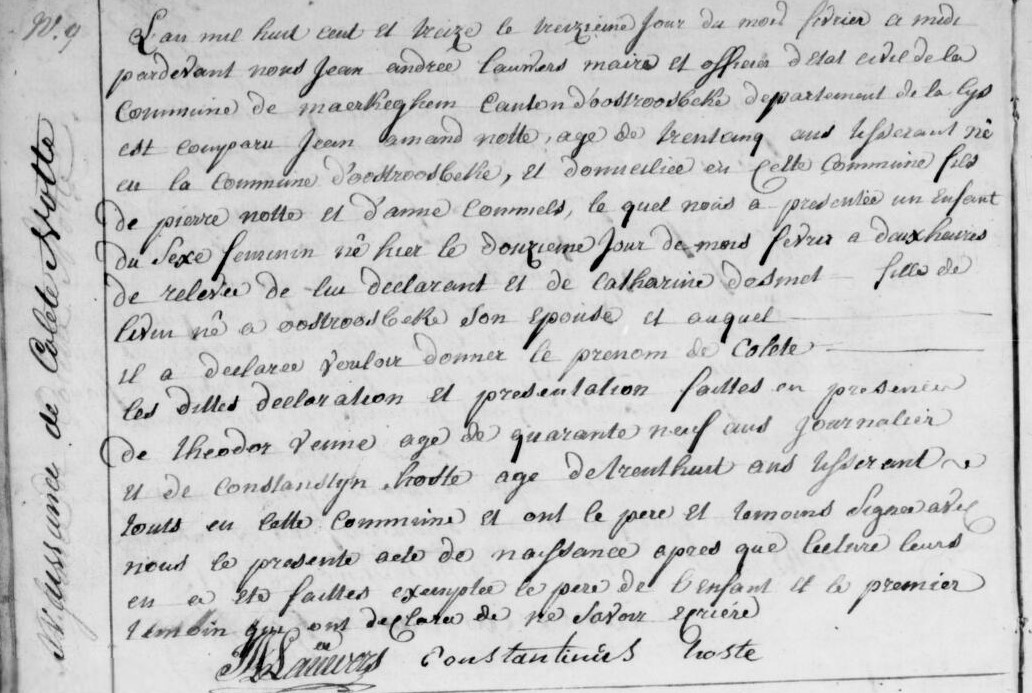 N. 9
Naissance de Colete Notte
L'an mil huit cent et treize le treizieme Jour du mois fevrier a midi
pardevant nous Jean andree Lauwers maire et officier d'Etat civil de la
Commune de maerkeghem Canton d'oostroosbeke departement de la lys
est comparu Jean amand notte, age de trentcinq ans tisserant né
en la Commune d'oostroosbeke, et domiciliée en Cette Commune fils
de pierre notte et d'anne Commels, le quel nous a presentée un Enfant
du Sexe feminin né hier le douzieme Jour de mois fevrier a deux heures
de relevée de lui declarant et de Catharine desmet fille de
livin né a oostroosbeke son Epouse et auquel
il a declaree vouloir donner le prenom de Colete
les dittes declaration et presentation faittes en presence
de theodor venne age de quarante neuf ans Journalier
et de Constanstyn hoste age de trenthuit ans tisserant
touts en Cette Commune et ont le pere et temoins Signee avec
nous le presente acte de naissance apres que lecture leurs
en a ete faittes exemptee le pere de l'enfant et le premier
temoin qui ont declaree de ne savoir ecriére
Lauwers Constantinus hoste